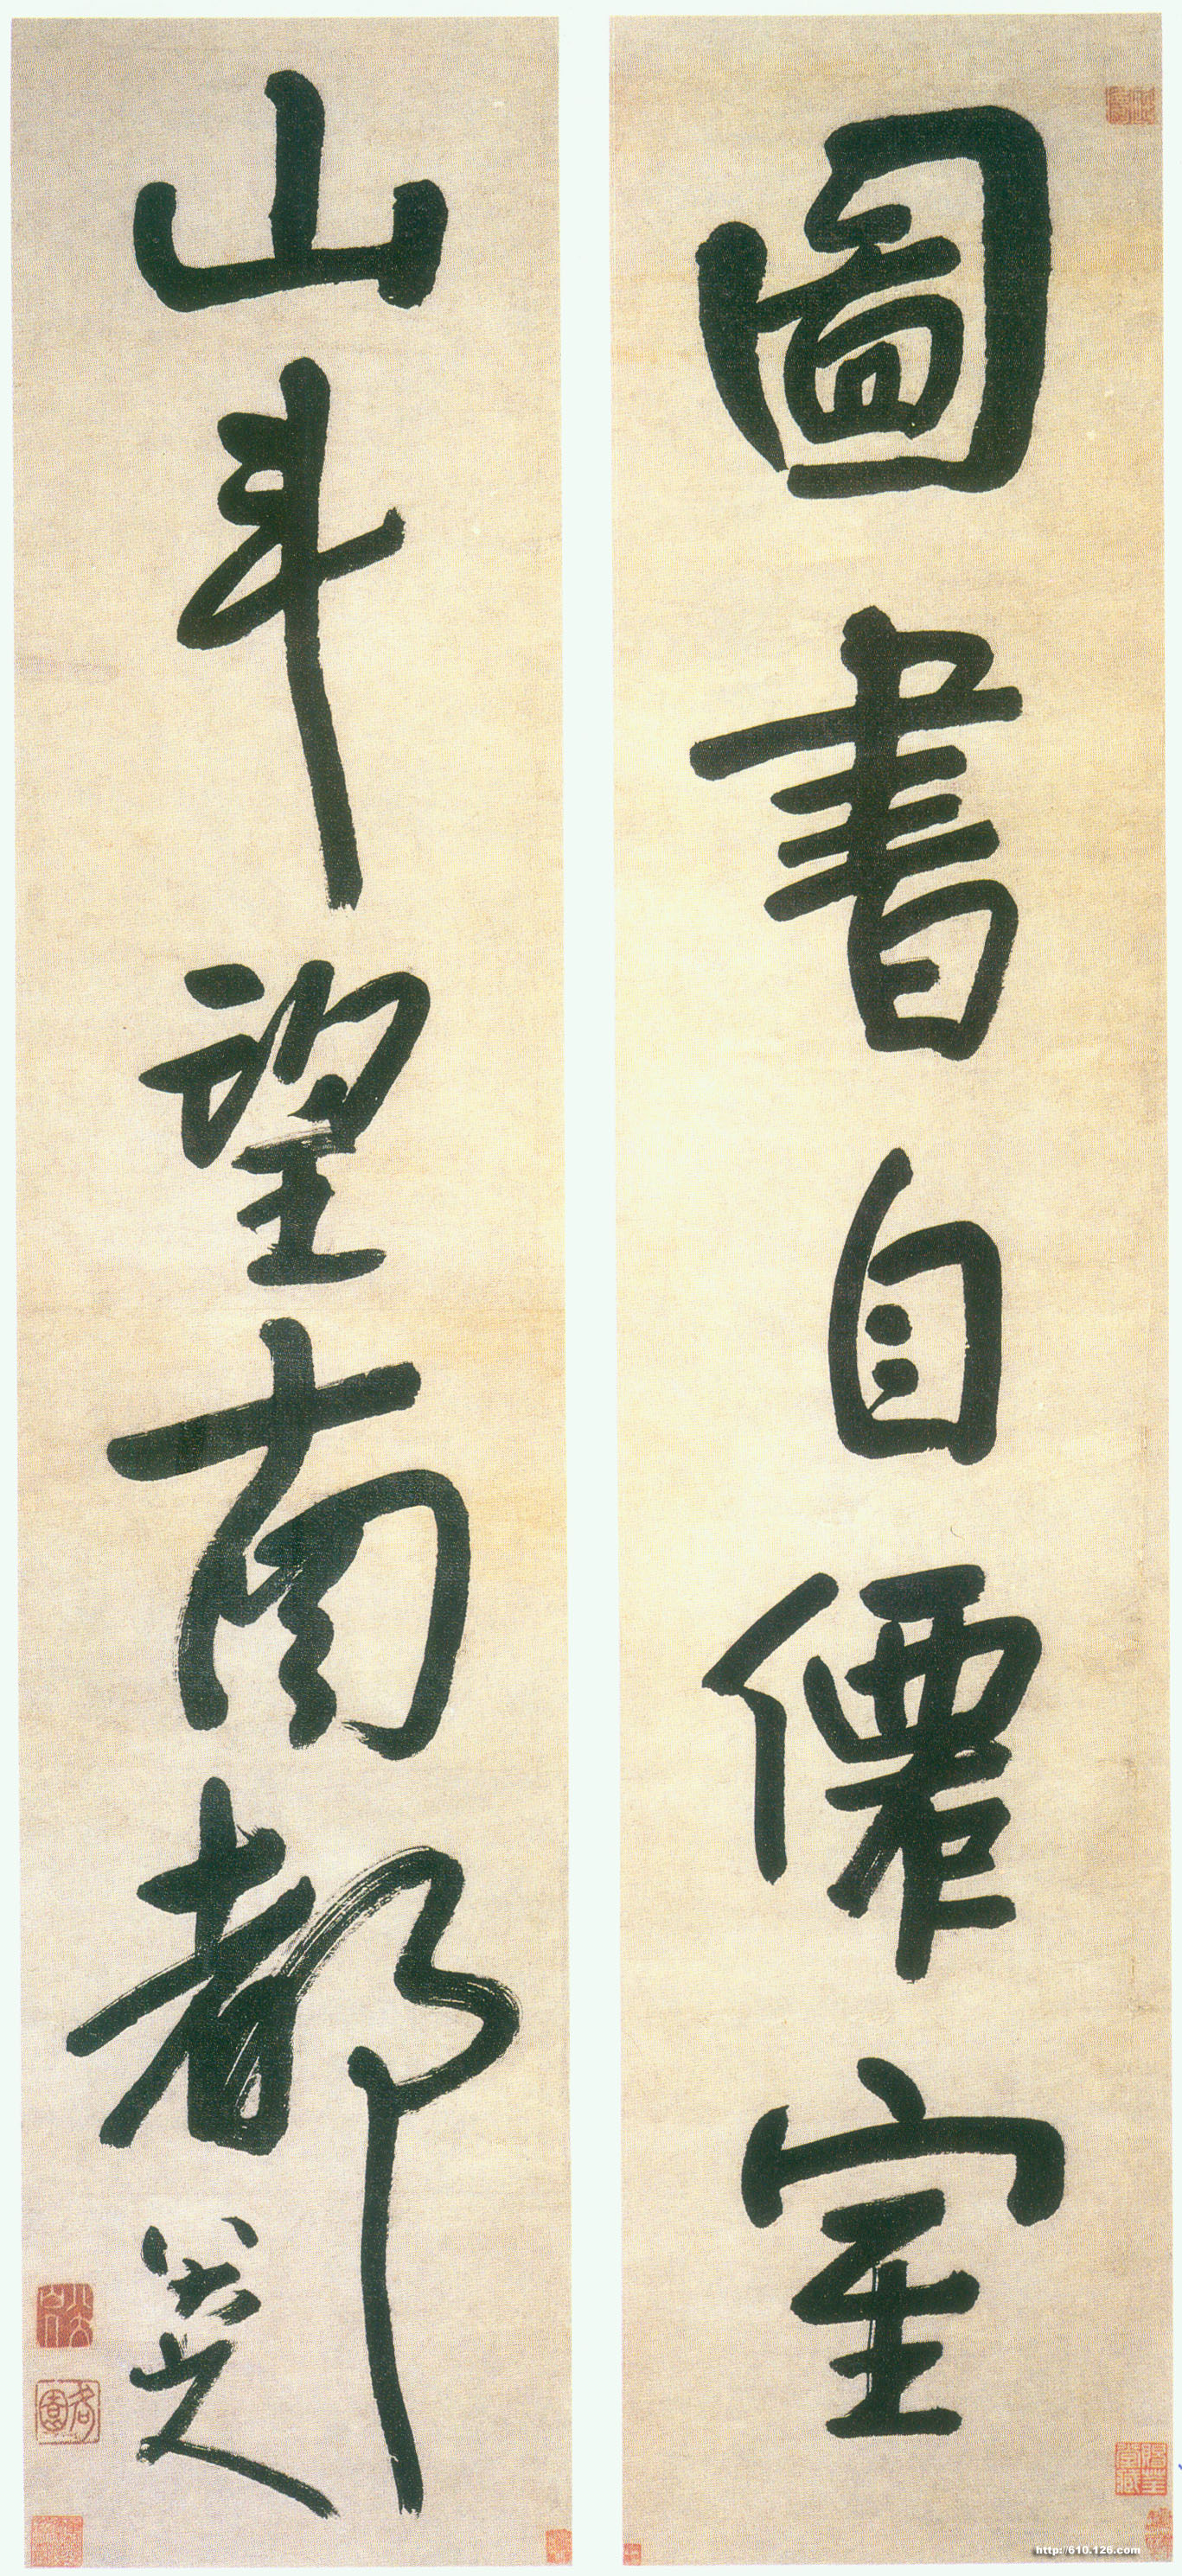 圖書自僊室
山斗望南都
八大山人
八大山人
http://610.126.com